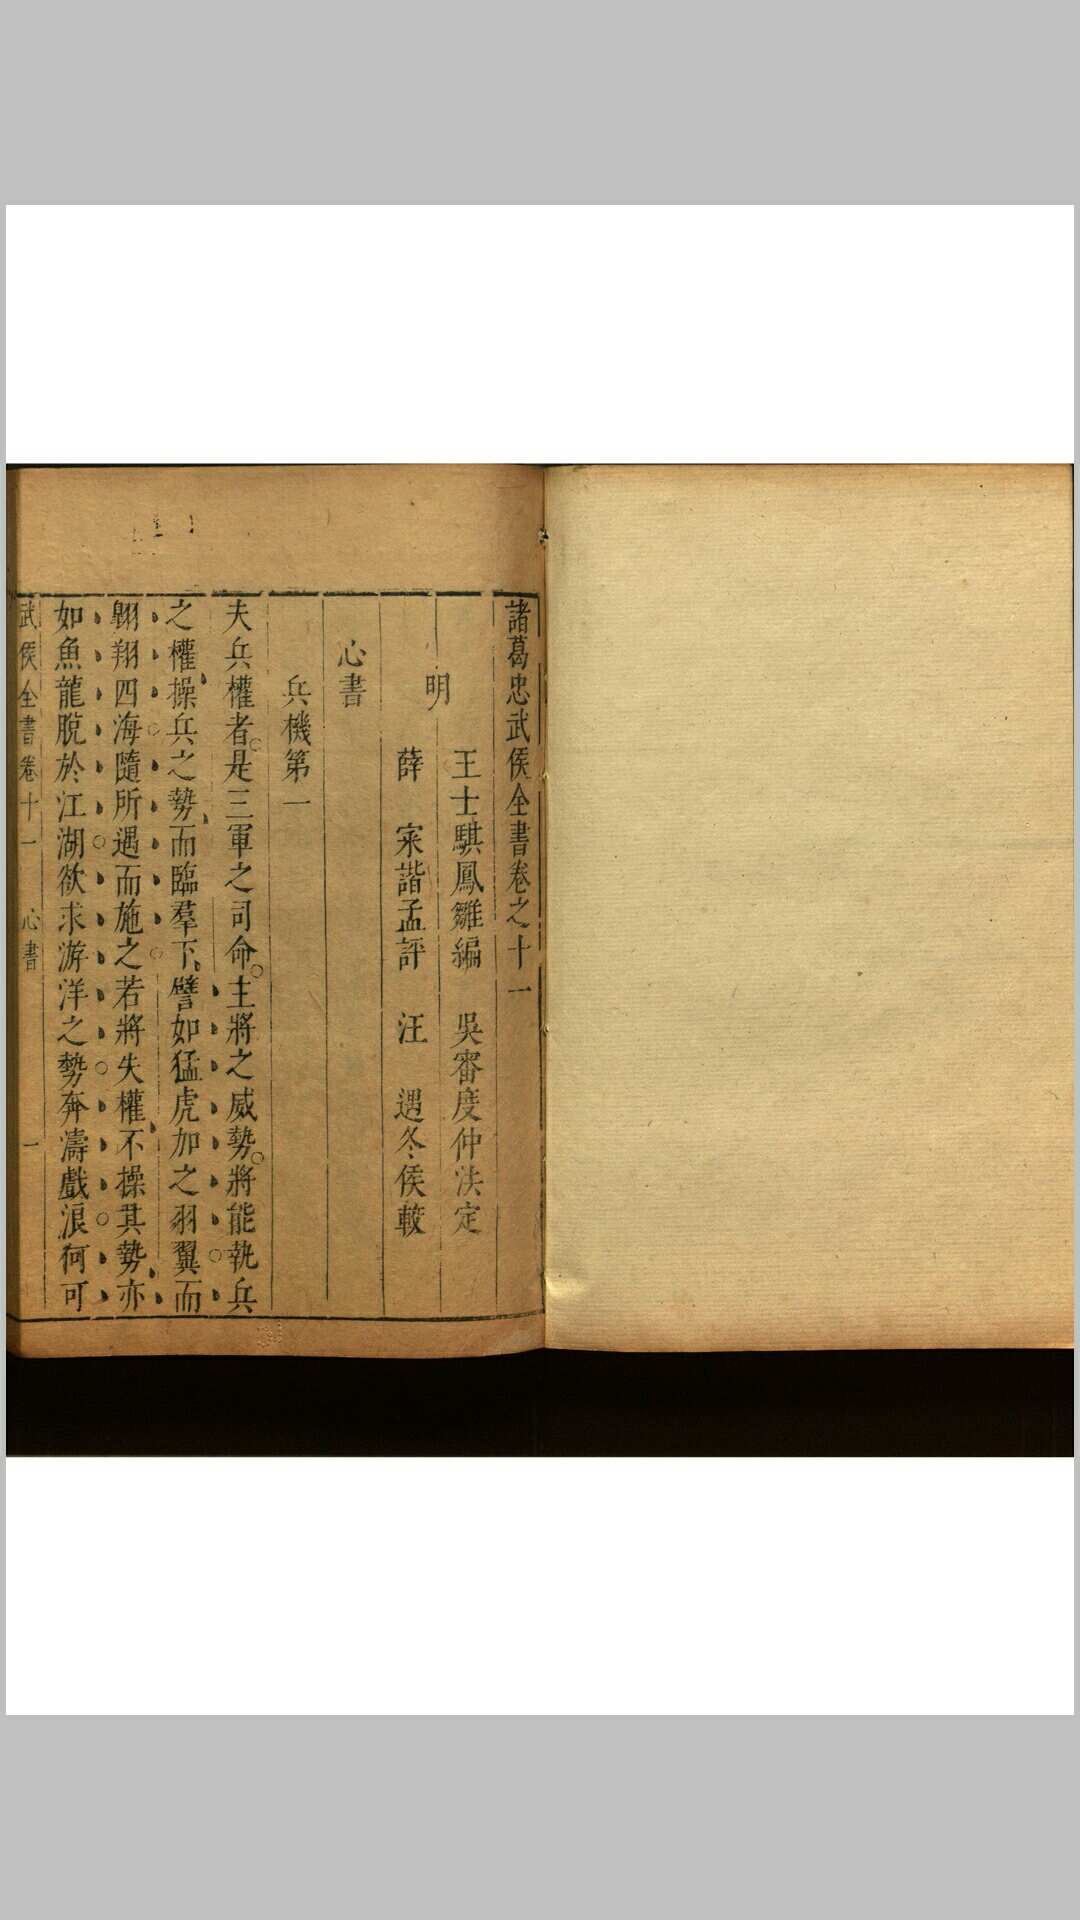 諸葛忠武侯全書卷之十一
明
王士騏鳳雛編 吳審度仲洪定
薛寀諧孟評 汪遇冬侯較
心書
兵機第一
夫兵權者是三軍之司命主將之威勢將能執兵
之權操兵之勢而臨羣下譬如猛虎加之羽翼而
翱翔四海隨所遇而施之若將失權不操其勢亦
如魚龍脫於江湖欲求游洋之勢奔濤戲浪何可
武侯全書卷十一 心書 一